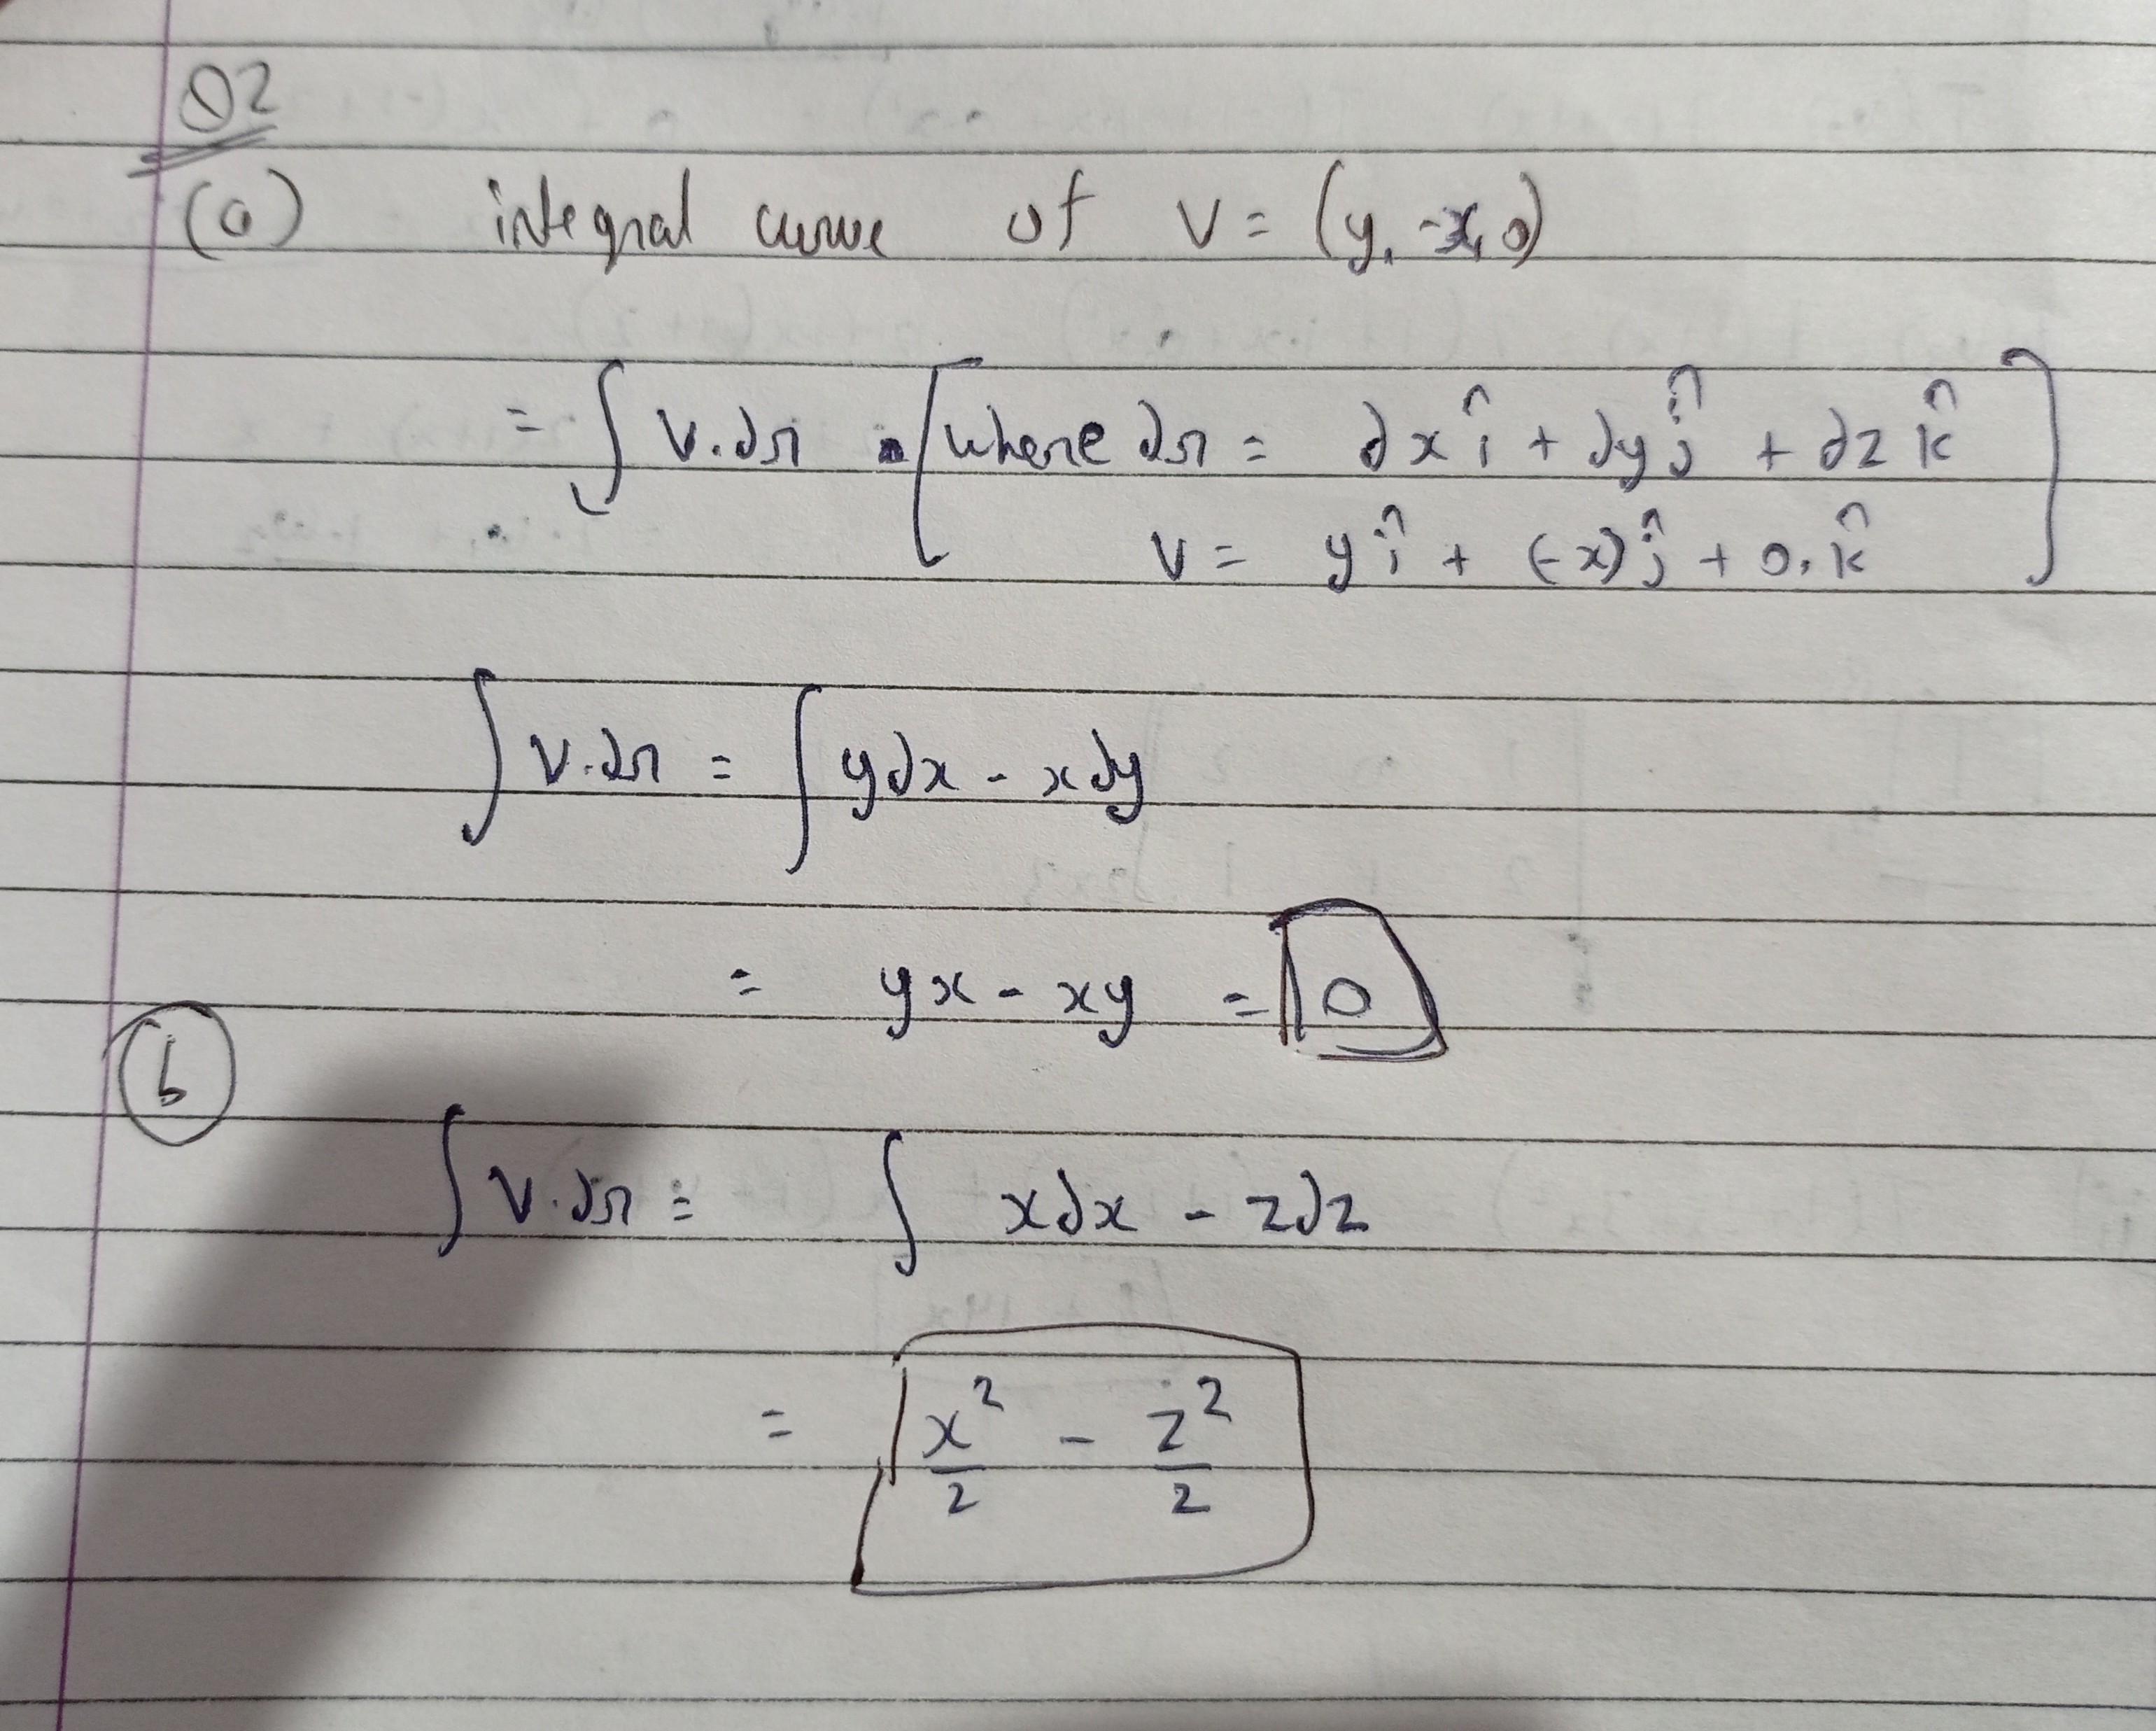 Q2
(a) integral curve of V = (y, -x, 0)
= ∫ V.dr [where dr = dx î + dy ĵ + dz k̂
V = y î + (-x) ĵ + 0. k̂ ]
∫ V.dr = ∫ ydx - xdy
= yx - xy = 0
b
∫ V.dr = ∫ xdx - zdz
= x²/2 - z²/2